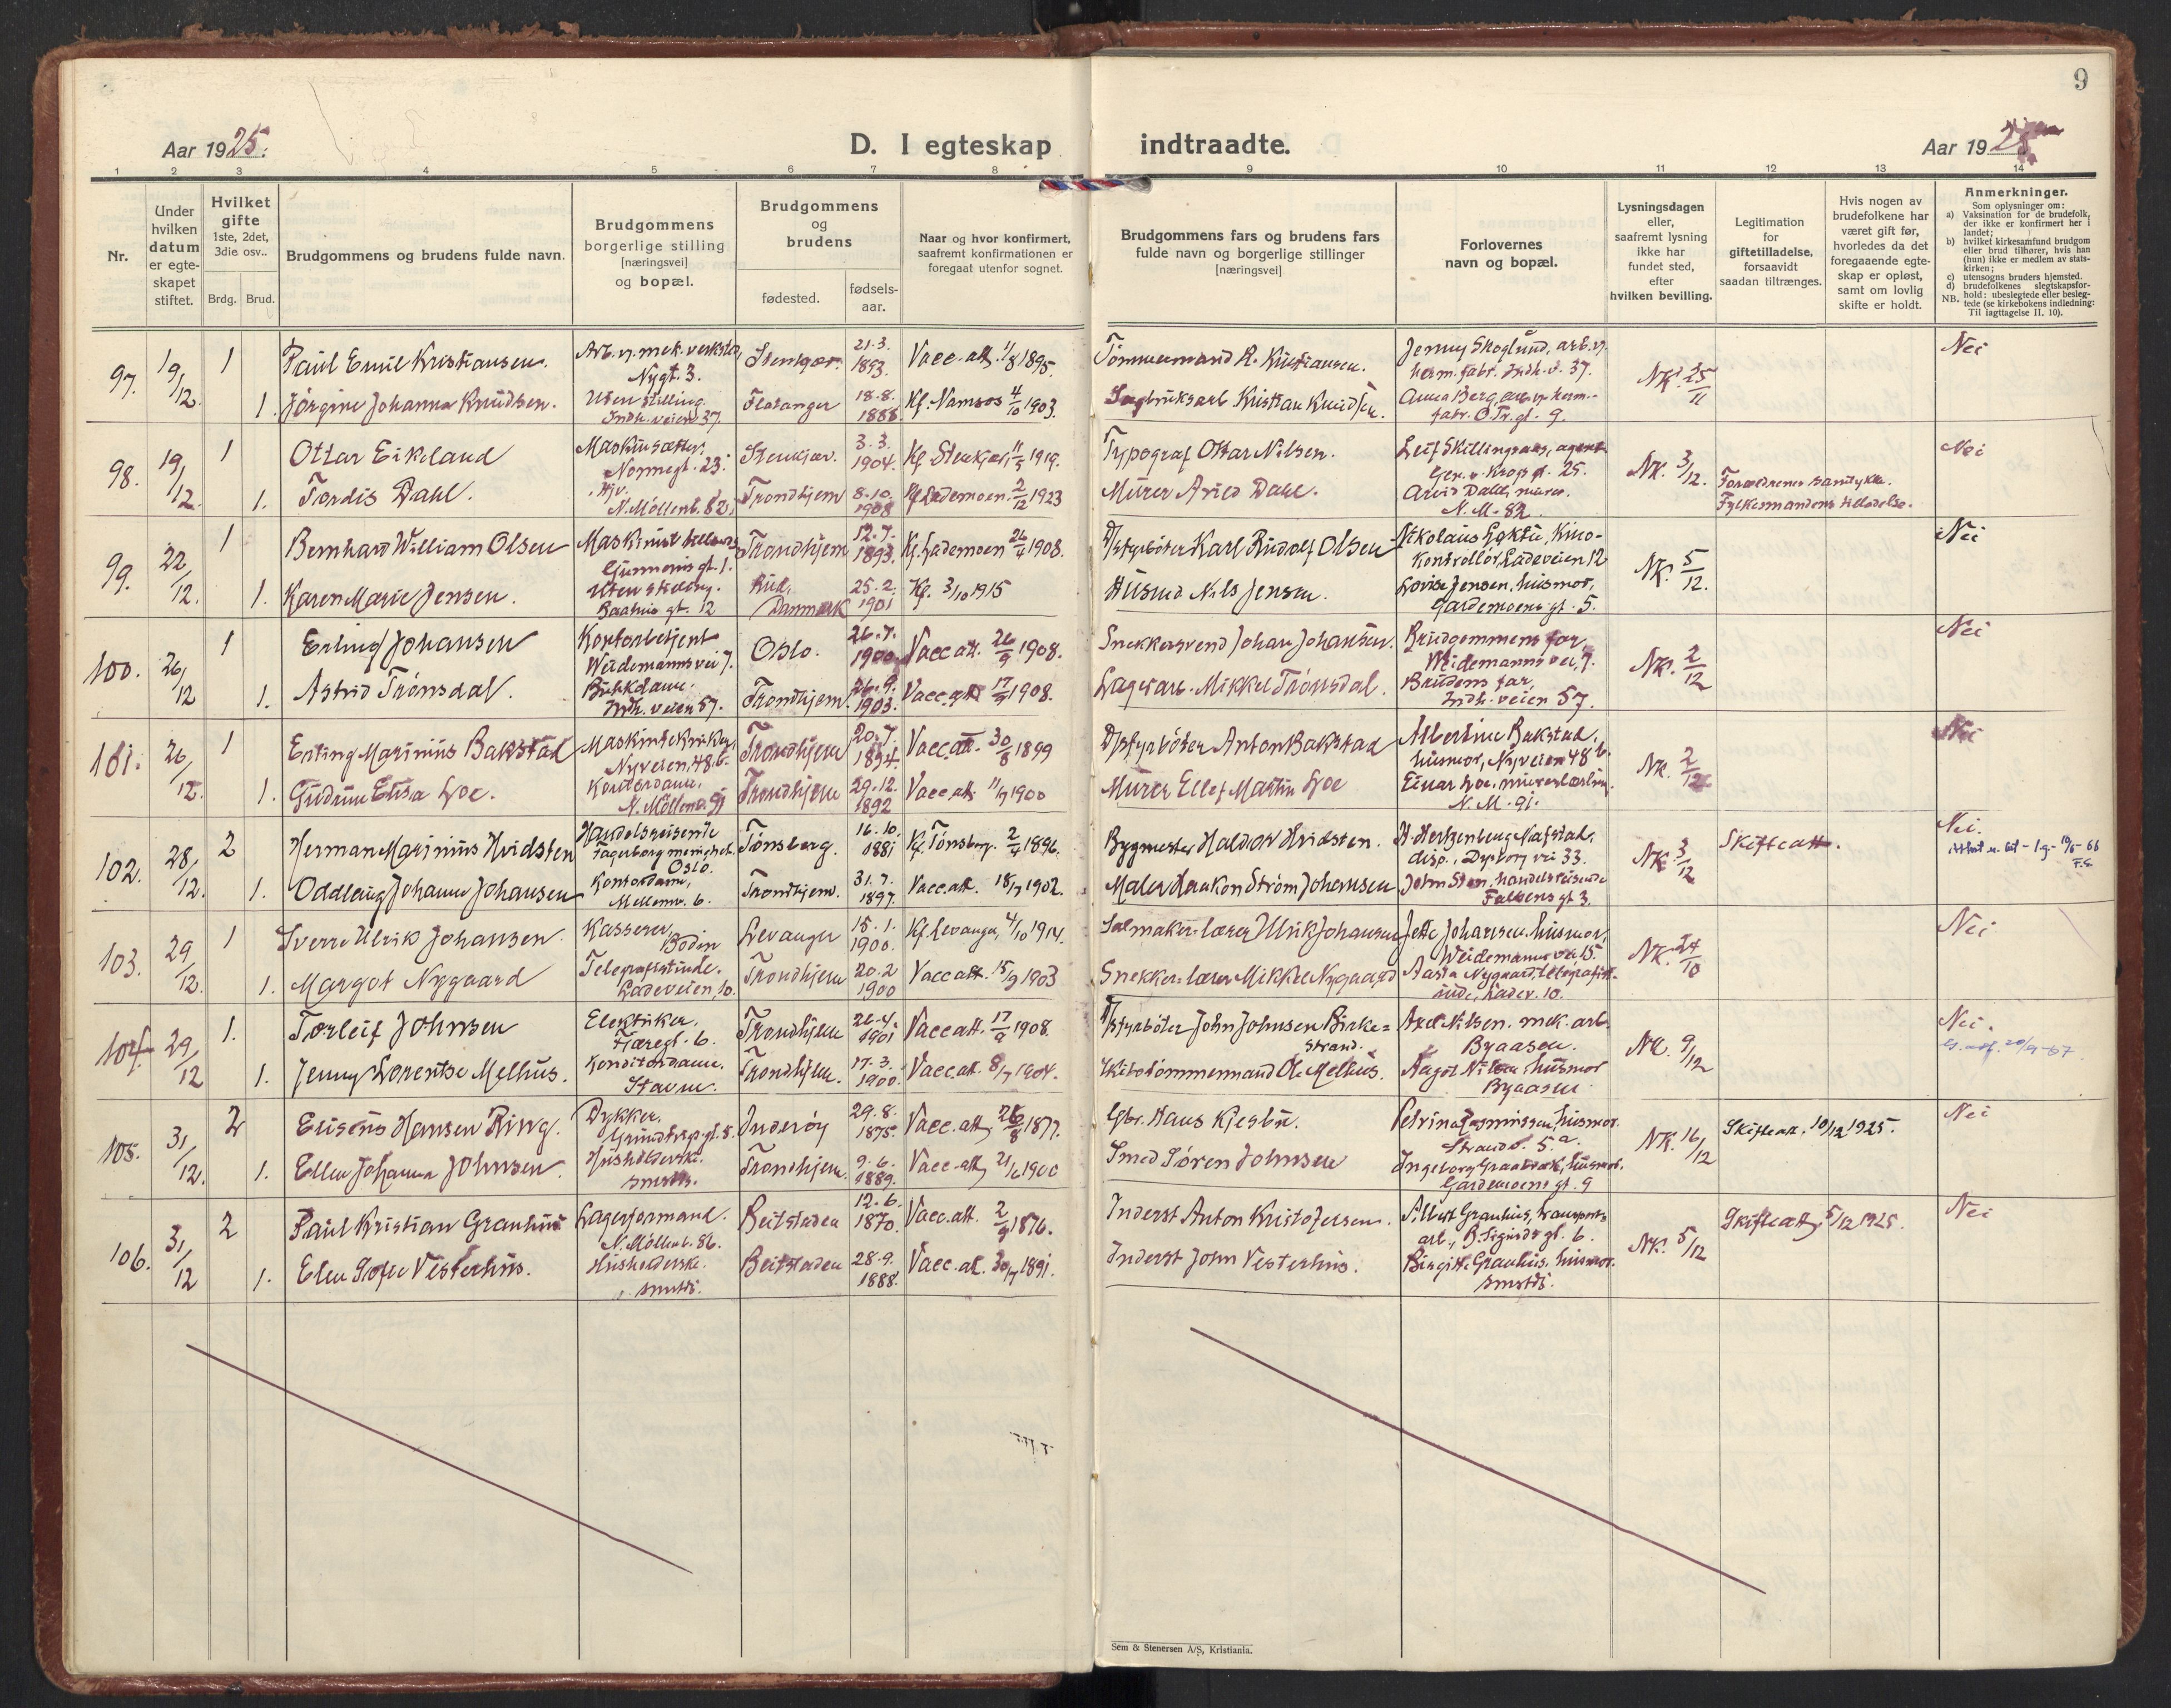 9
Aar 1925.
D. I egteskap
indtraadte.
Aar 1925
1 2 3 4 5 6 7 8 9 10 11 12 13 14
Nr.
Under
hvilken
datum
er egte-
skapet
stiftet.
Hvilket
gifte
1ste, 2det,
3die osv..
Brdg. Brud.
Brudgommens og brudens fulde navn.
Brudgommens
borgerlige stilling
[næringsvei]
og bopæl.
Brudgommens
og
brudens
fødested.
fødsels-
aar.
Naar og hvor konfirmert,
saafremt konfirmationen er
foregaat utenfor sognet.
Brudgommens fars og brudens fars
fulde navn og borgerlige stillinger
[næringsvei]
Forlovernes
navn og bopæl.
Lysningsdagen
eller,
saafremt lysning
ikke har
fundet sted,
efter
hvilken bevilling.
Legitimation
for
giftetilladelse,
forsaavidt
saadan tiltrænges.
Hvis nogen av
brudefolkene har
været gift før,
hvorledes da det
foregaaende egte-
skap er opløst,
samt om lovlig
skifte er holdt.
Anmerkninger.
Som oplysninger om:
a) Vaksination for de brudefolk,
der ikke er konfirmert her i
landet;
b) hvilket kirkesamfund brudgom
eller brud tilhører, hvis han
(hun) ikke er medlem av stats-
kirken;
c) utensogns bruders hjemsted.
d) brudefolkenes slegtskapsfor-
hold: ubeslegtede eller besleg-
NB. tede (se kirkebokens indledning:
Til iagttagelse II, 10).
97. 19/12. 1 Paul Emil Kristiansen. Arb. v. mek. verksted, Nygt. 3. Stenkjær. 21.3. 1893. Vacc. att. 1/8 1895. Tömmermand R. Kristiansen. Jenny Skoglund, arb. v. herm. fabr. Indh. v. 37. NK. 25/11 Nei
1. Jörgine Johanna Knudsen. Uten stilling. Indh. veien 37. Flatanger 18.8. 1888. Kf. Namsos 4/10 1903. Sagbruksarb Kristian Knudsen. Anna Berg, arb. v. herm. fabr. O. Tr. gt. 9.
98. 19/12. 1 Ottar Eikeland Maskinsætter, Nonnegt. 23. Stenkjær. 3.3. 1904. Kf. Stenkjær, 11/5 1919. Typograf Ottar Nilsen. Leif Skillingsaas, agent Gen. v. Krogs gt. 25. NK. 3/12. Nei
1. Tordis Dahl. Hjv. N. Möllenb. 82. Trondhjem 8.10. 1908 Kf. Lademoen. 2/12 1923 Murer Arvid Dahl. Arvid Dahl, murer. N. M. 82. Forældrenes samtykke. Fylkesmandens tilladelse.
99. 22/12. 1 Bernhard William Olsen Maskinist Gunnerus gt. 1. Trondhjem 12.7. 1893. Kf. Lademoen 26/4 1908. D/styrböter Karl Rudolf Olsen Nikolaus Loktu, Kino-Kontrollör, Ladeveien 12 NK. 5/12. Nei
1. Karen Marie Jensen. Uten stilling. Baahus gt. 12 Danmark 25.2. 1901 Kf. 3/10 1915 Husmd Nils Jensen. Lovise Jensen, husmor, Gardemoens gt. 5.
100. 26/12 1 Erling Johansen Kontorbetjent Weidemannsvei 7. Oslo. 26.7. 1900 Vacc att. 26/9 1908. Snekkersvend Johan Johansen. Brudgommens far, Weidemanns vei, 7. NK. 2/12 Nei
1. Astrid Trönsdal. Butikdame. Indh. veien 57. Trondhjem. 26.9. 1903. Vacc. att. 17/9 1908. Lagerarb. Mikkel Trönsdal. Brudens far, Indh. veien 57.
101. 26/12. 1 Erling Marinius Bakstad Maskintekniker, Nyveien, 48 b. Trondhjem 20.7. 1894. Vacc. att. 30/8 1899 D/styrböter Anton Bakstad Albertine Bakstad, husmor, Nyveien 48 b. NK. 2/12. Nei
1. Gudrun Elisa Loe. Kontordame, N. Möllenb. 91 Trondhjem 29.12. 1892 Vacc. att. 11/9 1900 Murer Ellef Martin Loe Einar Loe, murerlærling. N. M. 91.
102. 28/12. 2 Herman Marinius Hvidsten Handelsreisende Fagerborg menighet. Oslo. Tönsberg. 16.10. 1881 Kf. Tönsberg. 2/4 1896. Bygmester Haldor Hvidsten. H. Hertzenberg Nafstad, disp., Dyrborg vei 33. NK. 3/12 Skifteatt. Nei.
1. Oddlaug Johanne Johansen Kontordame, Mellemv. 6. Trondhjem. 31.7. 1897. Vacc. att. 18/7 1902. Maler Haakon Ström Johansen John Sten, handelsreisende Falkens gt 3.
103. 29/12. 1 Sverre Ulrik Johansen. Kasserer, Bodin Levanger 15.1. 1900. Kf. Levanger, 4/10 1914. Salmaker-lærer Ulrik Johansen Jette Johansen, husmor, Weidemanns vei 15. NK. 24/10 Nei
1. Margot Nygaard Telegrafistinde. Ladeveien, 10. Trondhjem 20.2 1900 Vacc att. 15/9 1903 Snekker-lærer Mikkel Nygaard Aasta Nygaard, telegrafistinde, Ladev. 10.
104. 29/12 1. Torleif Johnsen Elektriker. Fjæregt. 6. Trondhjem 26.4. 1901 Vacc att. 17/9 1908. D/styrböter John Johnsen Birke=strand. Axel Nilsen. mek. arb. Byaasen. NK. 9/12 Nei.
1. Jenny Lorentse Melhus. Konditordame. Stavne. Trondhjem. 17.3. 1900. Vacc. att. 8/7 1904. Skibstömmermand Ole Melhus. Aagot Nilsen husmor Byaasen
105. 31/12. 2 Elisæus Hansen Ring. Dykker. Grundtvigs gt. 8. Inderöy 29.8. 1875. Vacc. att. 26/8 1877. Gbr. Hans Kjesbu. Petrina Rasmissen, husmor. Strandv. 5 a. NK. 16/12 Skifteatt. 10/12 1925. Nei
1. Ellen Johanna Johnsen Husholderske. smstds. Trondhjem. 9.6. 1889. Vacc. att. 21/6 1900 Smed Sören Johnsen Ingeborg Graabræk, husmor. Gardemoens gt. 9
106. 31/12 2 Paul Kristian Granhus Lagerformand. N. Möllenb. 86. Beitstaden 12.6. 1870. Vacc. att. 2/9 1876. Inderst Anton Kristofersen. Albert Granhus, transportarb., B. Sigurds gt. 6. NK. 5/12 Skifteatt. 5/12 1925. Nei
1. Elen Sofie Vesterhus. Husholderske. smstds. Beitstaden 28.9. 1888. Vacc. att. 30/7 1891. Inderst John Vesterhus. Birgitte Granhus, husmor. smstds.
Sem & Stenersen A/S, Kristiania.